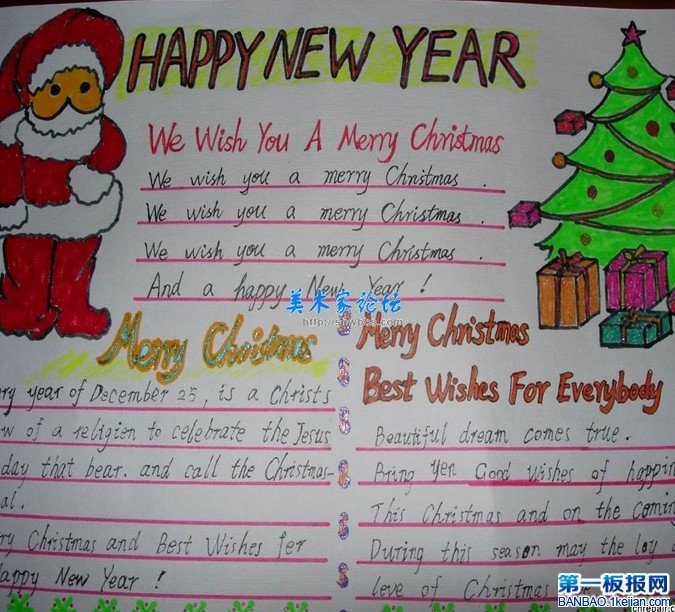 HAPPY NEW YEAR
We Wish You A Merry Christmas
We wish you a merry Christmas.
We wish you a merry Christmas.
We wish you a merry Christmas.
And a happy New Year!
美术家论坛
Merry Christmas
ry year of December 25, is a Christs
w of a religion to celebrate the Jesus
day that bear. and call the Christmas-
al.
ry Christmas and Best Wishes for
Happy New Year!
Merry Christmas
Best Wishes For Everybody
Beautiful dream comes true.
Bring yen Good Wishes of happin
This Christmas and on the coming
During this season may the loy
leve of Christmas
第一板报网
BANBAO.1kejian.com
cnrepair.c